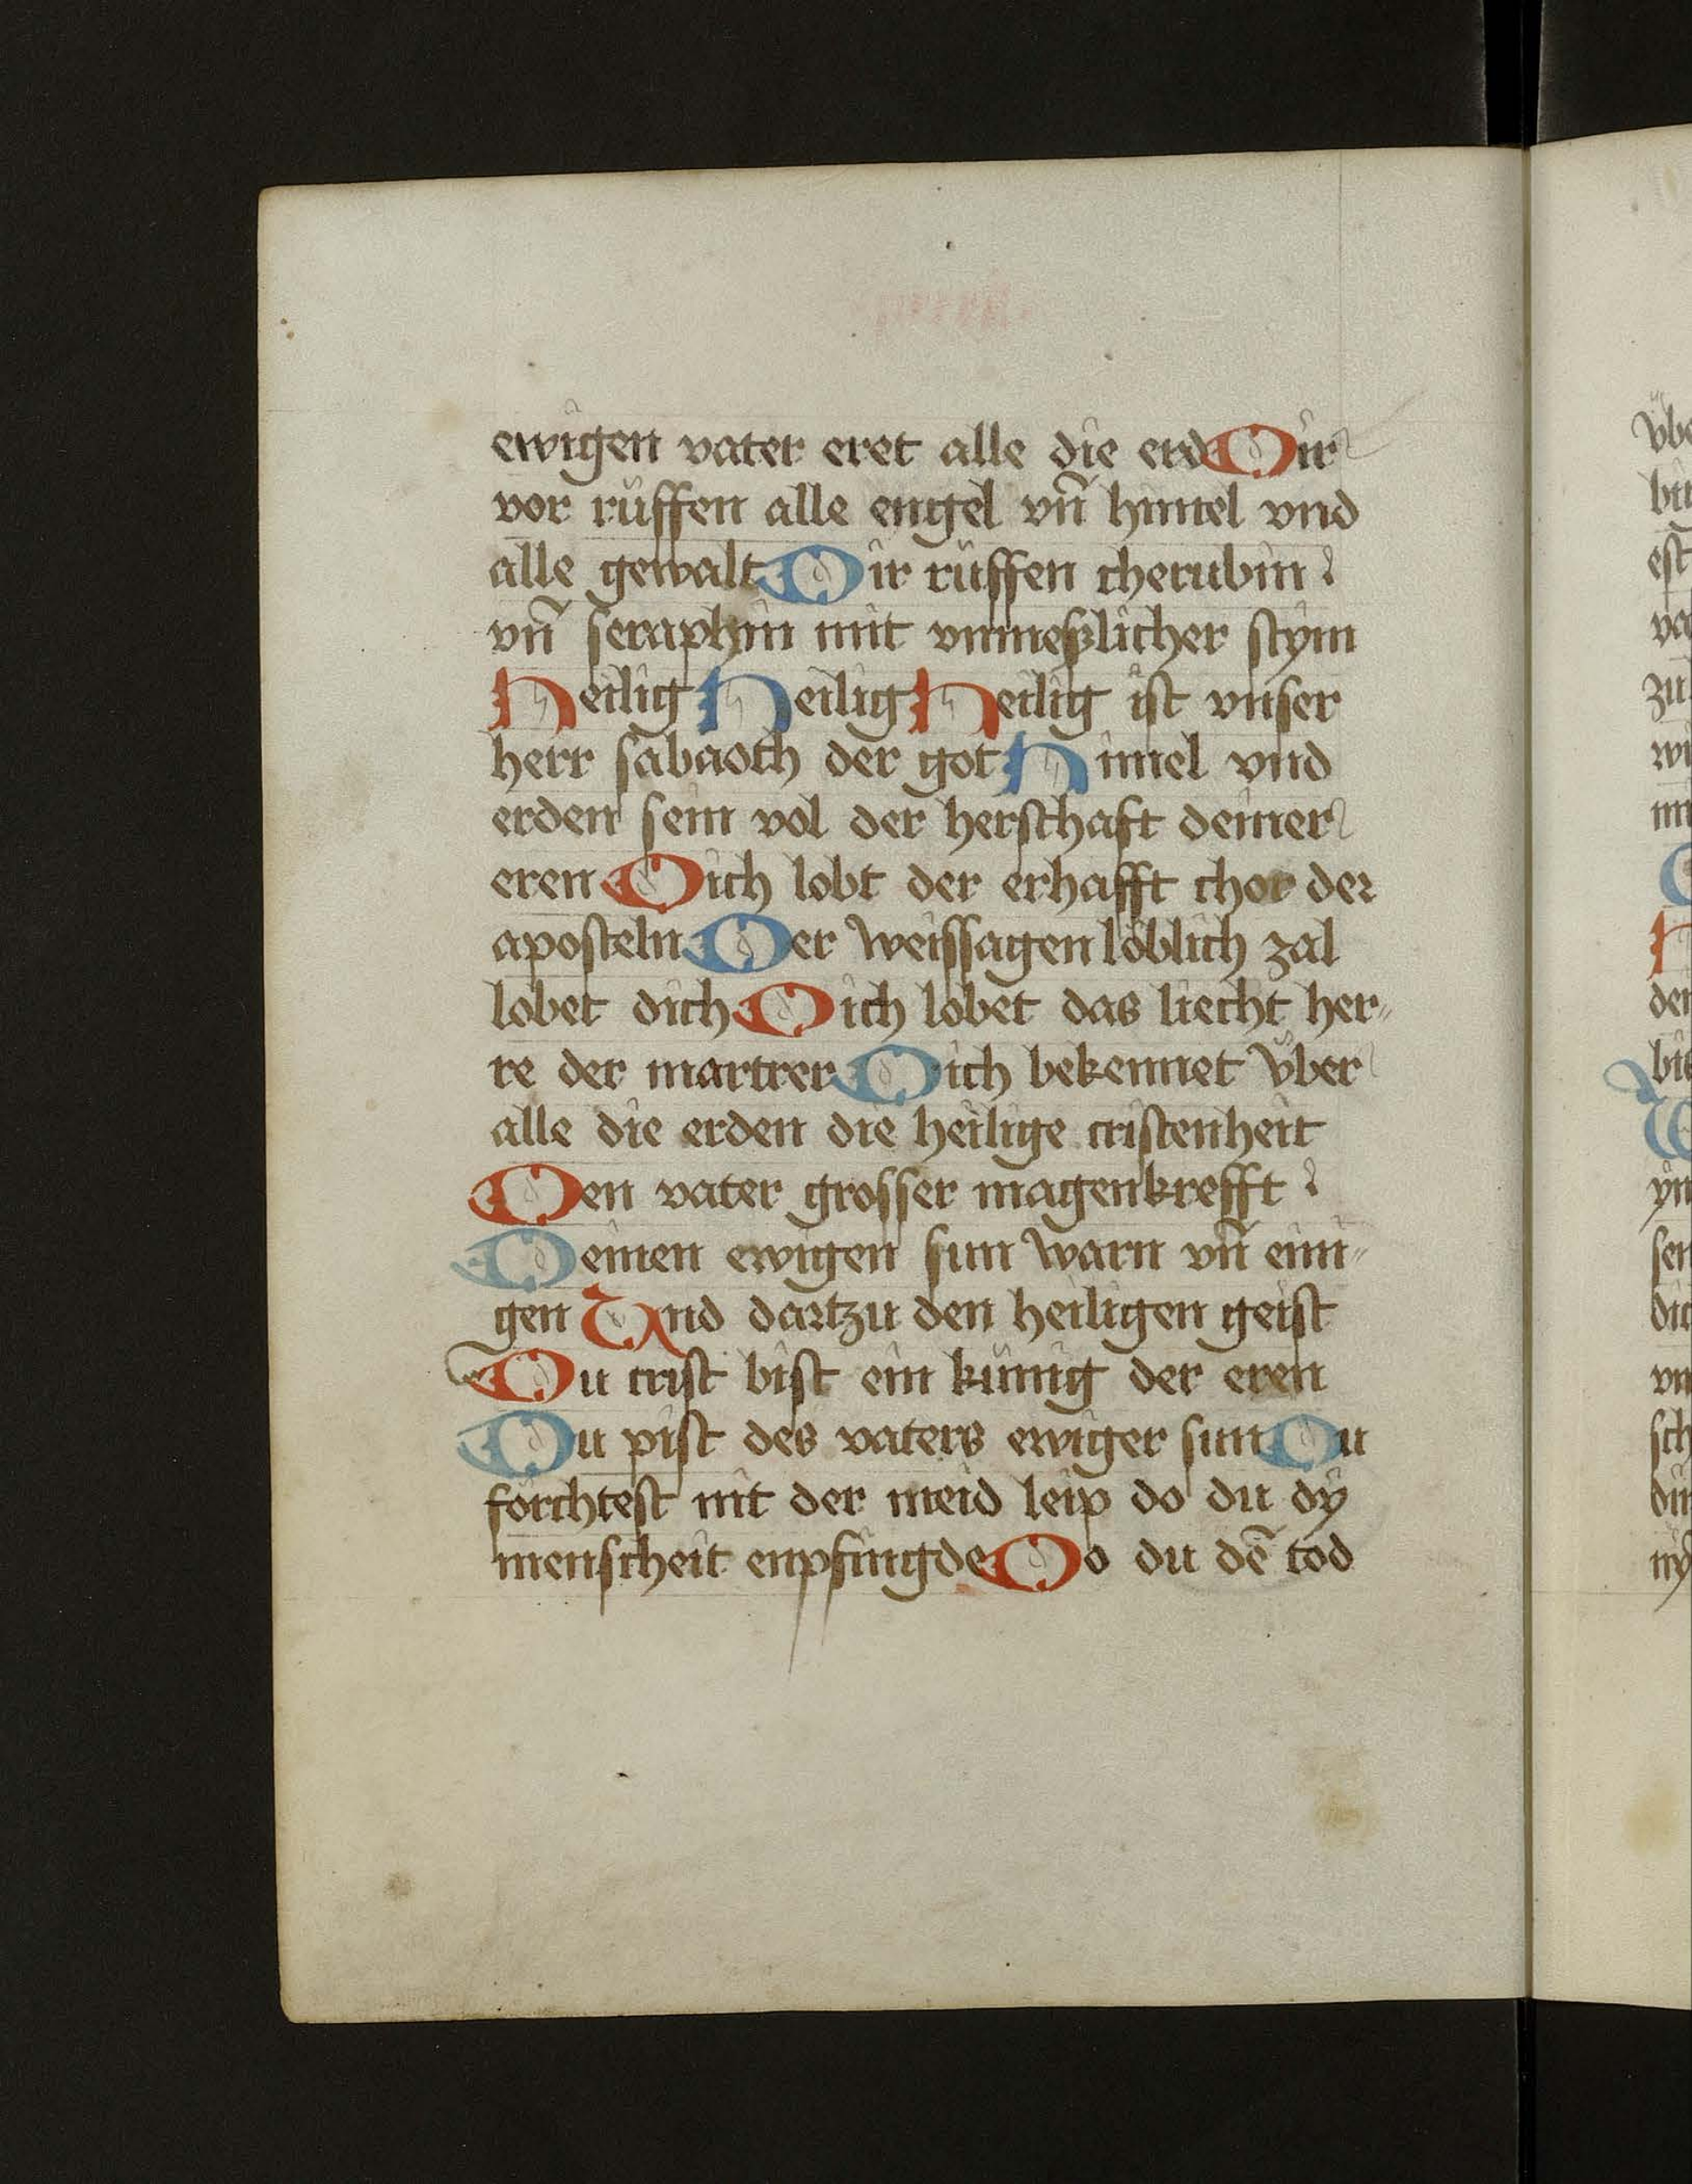 ewigen vater eret alle die erd Dir
vor rüffen alle engel vñ himel vnd
alle gewalt Dir rüffen cherubin
vñ seraphin mit vnmeßlicher stym
Heilig Heilig Heilig ist vnser
herr sabaoth der got Himel vnd
erden sein vol der herschaft deiner
eren Dich lobt der erhafft chor der
aposteln Der weissagen löblich zal
lobet dich Dich lobet das liecht her„
re der martrer Dich bekennet vber
alle die erden die heilige cristenheit
Den vater grosser magenkrefft
Deinen ewigen sun warn vñ eini„
gen Vnd dartzu den heiligen geist
Du crist bist ein künig der eren
Du pist des vaters ewiger sun Du
forchtest nit der meid leip do du dy
menscheit enpfingde Do du dē tod